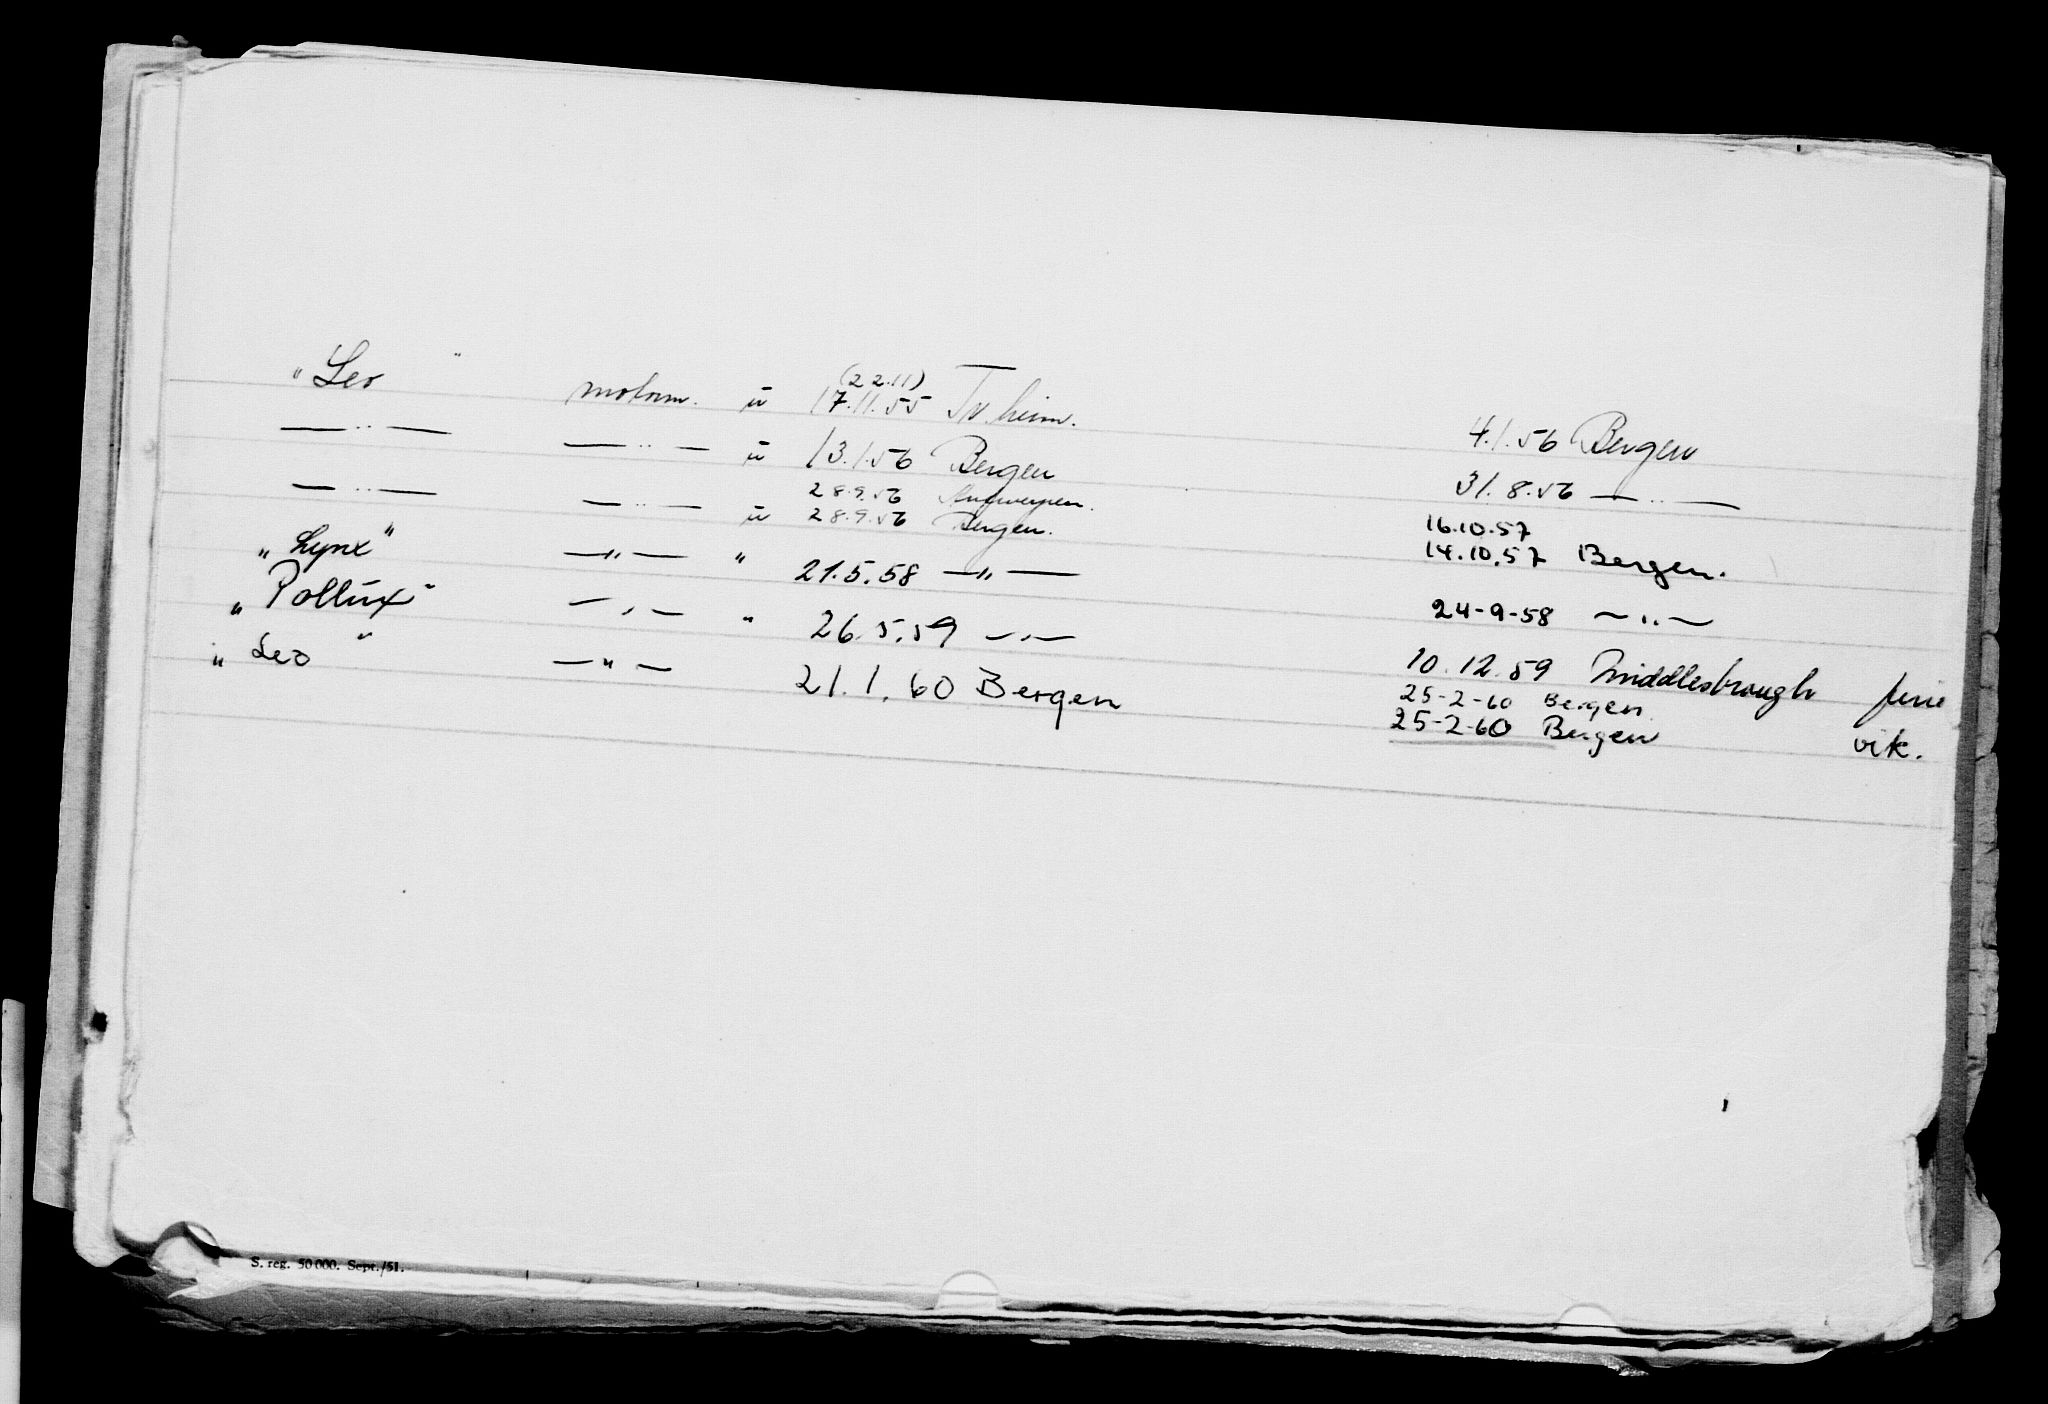 "Leo" motorm. ü (22.11) 17.11.55 Tr.heim. 4.1.56 Bergen
—"— —"— ü 13.1.56 Bergen 31.8.56 —"—
28.9.56 Antwerpen. 16.10.57
—"— —"— ü 28.9.56 Bergen. 14.10.57 Bergen.
"Lynx" —"— " 21.5.58 —"— 24-9-58 —"—
"Pollux" —"— " 26.5.59 —"— 10.12.59 Middlesbrough ferie
25-2-60 Bergen
"Leo" —"— 21.1.60 Bergen 25-2-60 Bergen vik.
S. reg. 50 000. Sept./51.